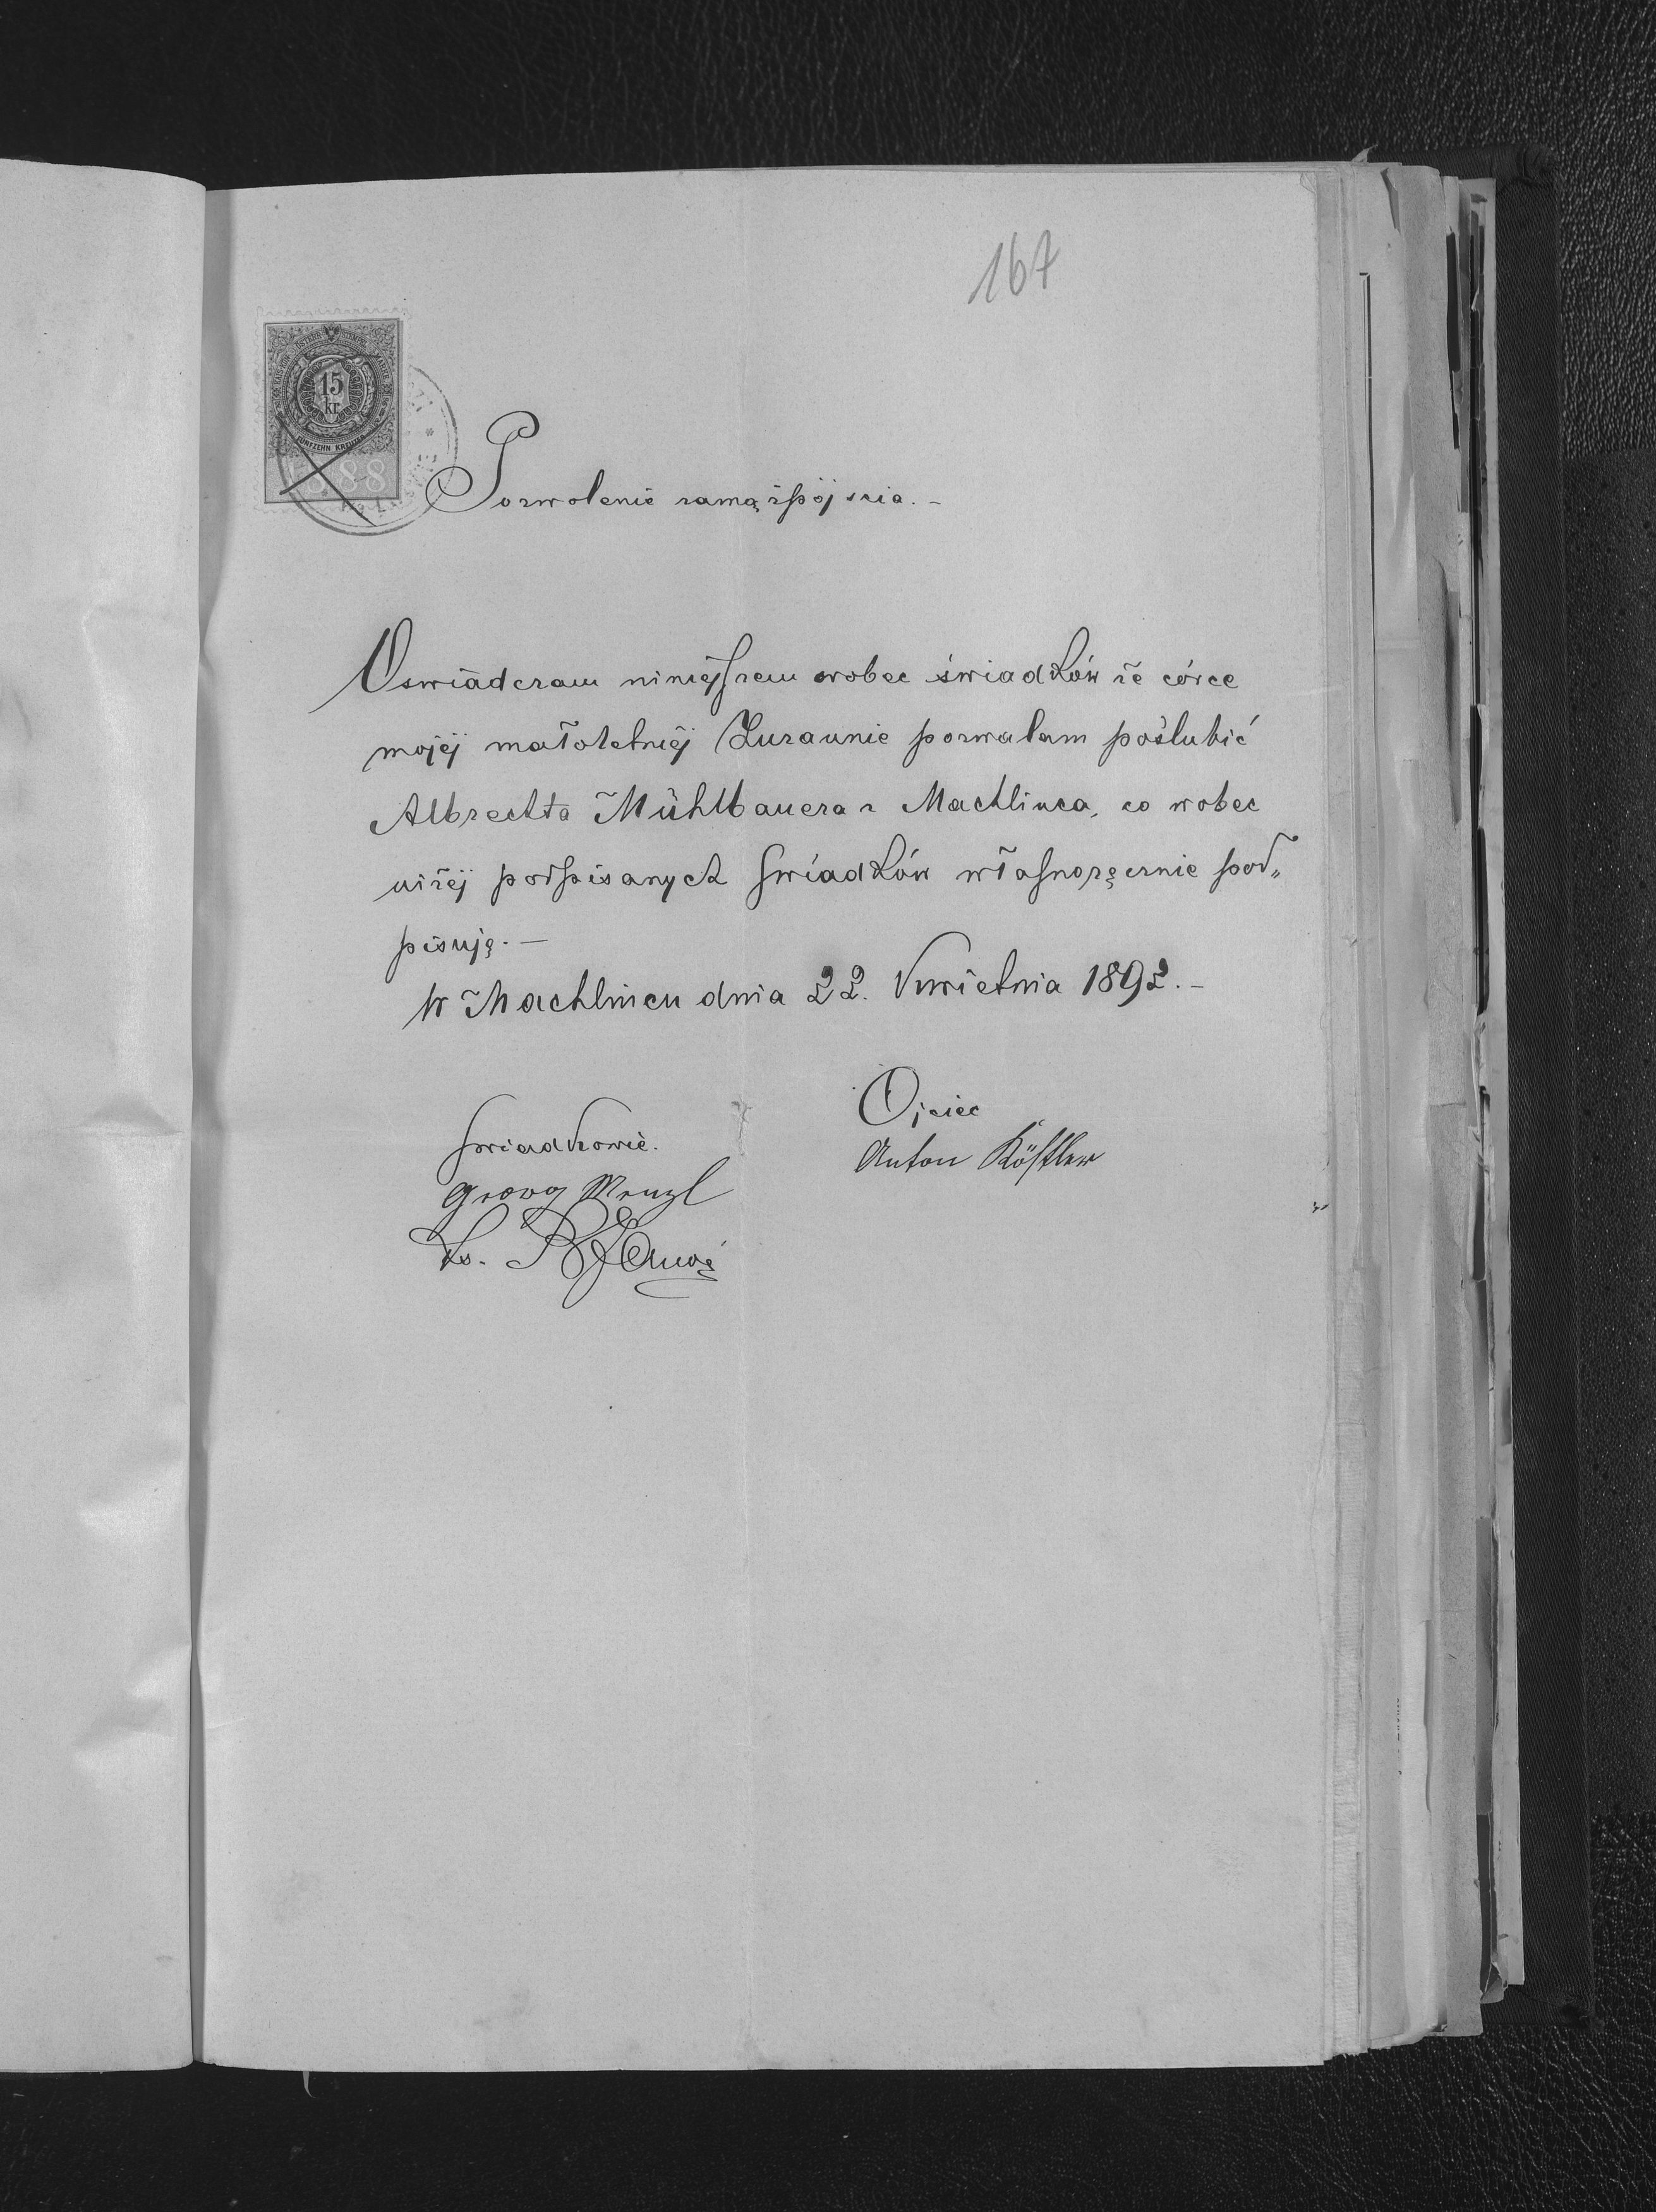 167
15
kr.
FÜNFZEHN KREUZER
1888
Pozwolenie zamążpójścia. -
Oswiadczam niniejszem wobec świadków że córce
mojéj małoletniéj Zuzannie pozwalam poślubić
Albrechta Mühlbauera z Machlińca, co wobec
niżéj podpisanych świadków własnoręcznie pod„
pisuję. -
W Machlińcu dnia 22. Kwietnia 1892. -
Ojciec
Anton Köstler
Świadkowie.
Georg Menzl